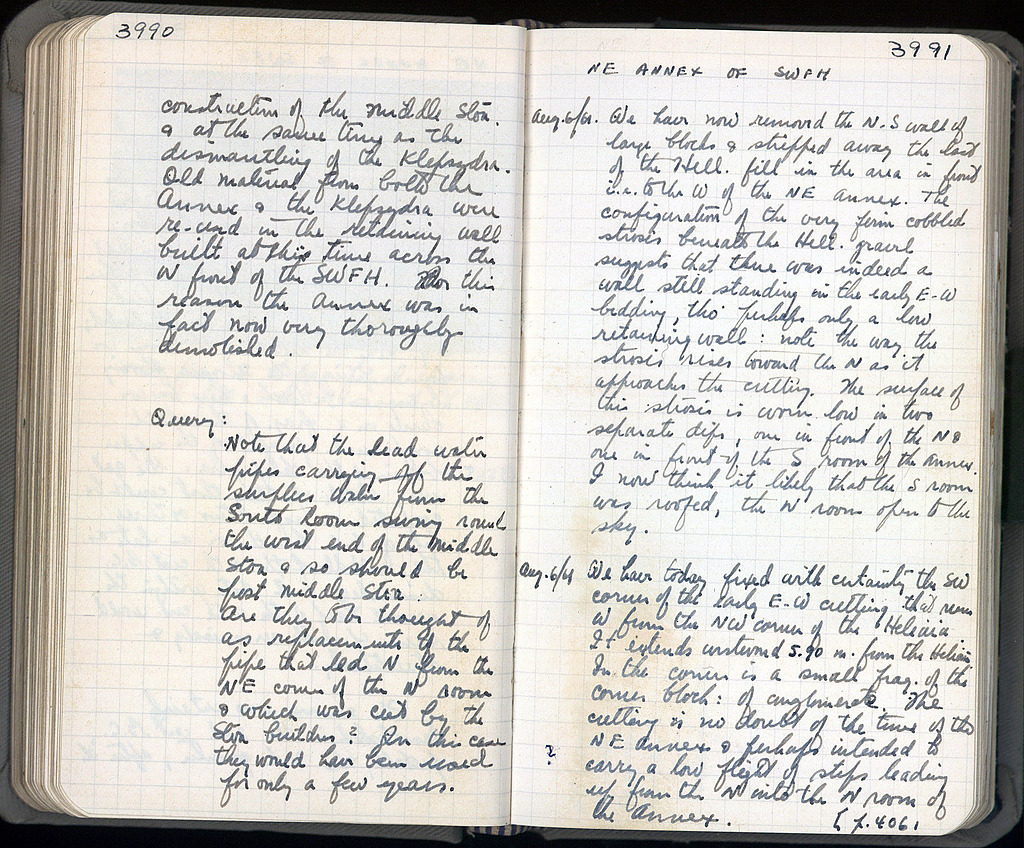 3990
construction of the Middle Stoa
& at the same time as the
dismantling of the Klepsydra.
Old material from both the
Annex & the Klepsydra were
re-used in the retaining wall
built at this time across the
N front of the SWFH. For this
reason the Annex was in
fact now very thoroughly
demolished.
Query:
Note that the lead water
pipes carrying off the
surplus water from the
South Room swing round
the west end of the Middle
Stoa & so should be
post Middle Stoa.
Are they to be thought of
as replacements of the
pipe that led N from the
NE corner of the N room
& which was cut by the
Stoa builders? In this case
they would have been used
for only a few years.
3991
NE ANNEX OF SWFH
Aug. 6/61. We have now removed the N.S wall of
large blocks & stripped away the last
of the Hell. fill in the area in front
i.e. to the W of the NE annex. The
configuration of the very firm cobbled
strosis beneath the Hell. gravel
suggests that there was indeed a
wall still standing in the early E-W
bedding, tho' perhaps only a low
retaining wall: note the way the
strosis rises toward the N as it
approaches the cutting. The surface of
this strosis is worn low in two
separate dips, one in front of the N &
one in front of the S room of the Annex.
I now think it likely that the S room
was roofed, the N room open to the
sky.
Aug. 6/61 We have today fixed with certainty the SW
corner of the early E-W cutting that runs
W from the NW corner of the Heliaia
It extends westward 5.90 m. from the Heliaia
In the corner is a small frag. of the
corner block: of conglomerate. The
cutting is no doubt of the time of the
NE Annex & perhaps intended to
? carry a low flight of steps leading
up from the N into the N room of
the Annex.
p. 4061